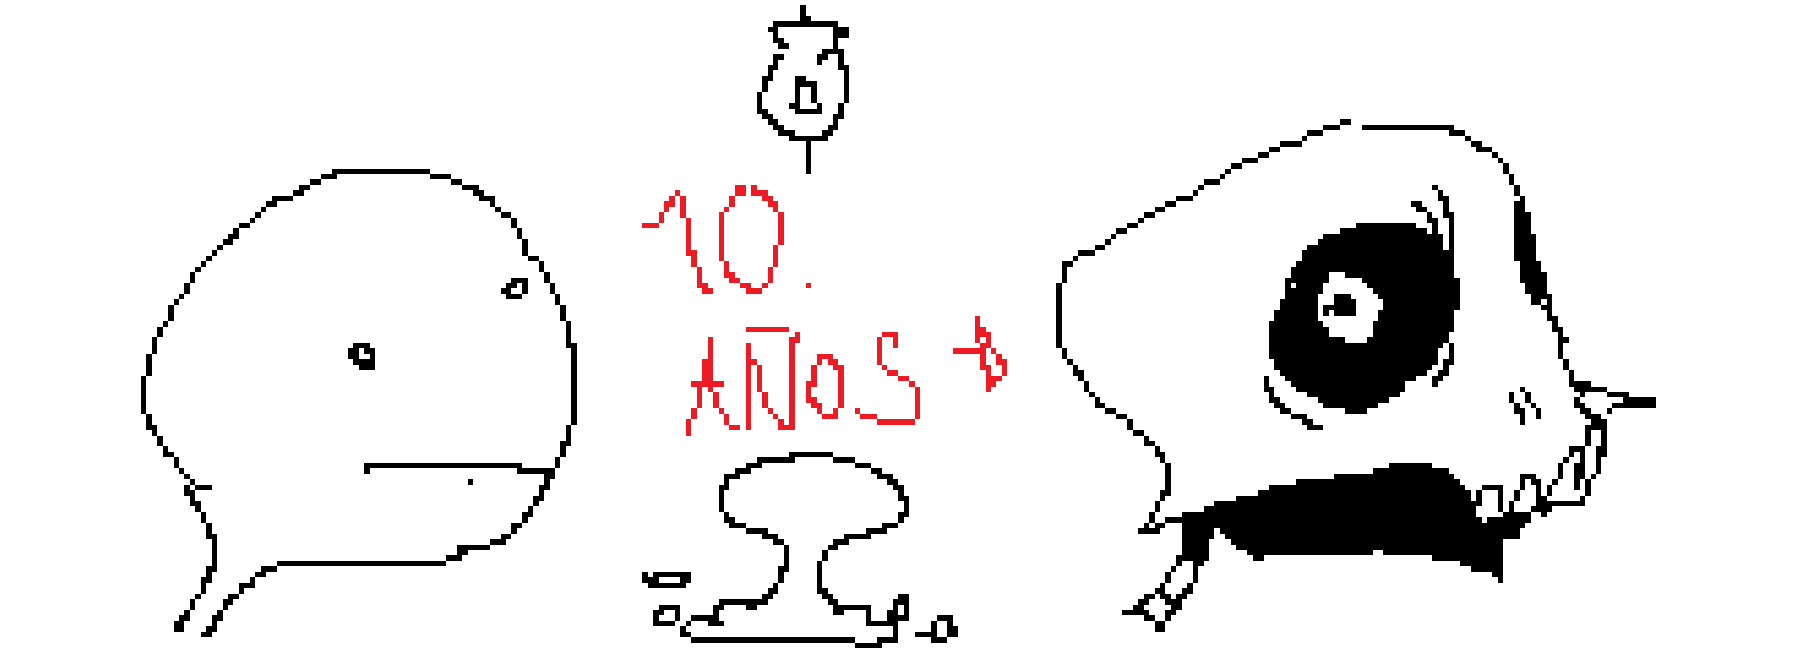 10.
AÑOS